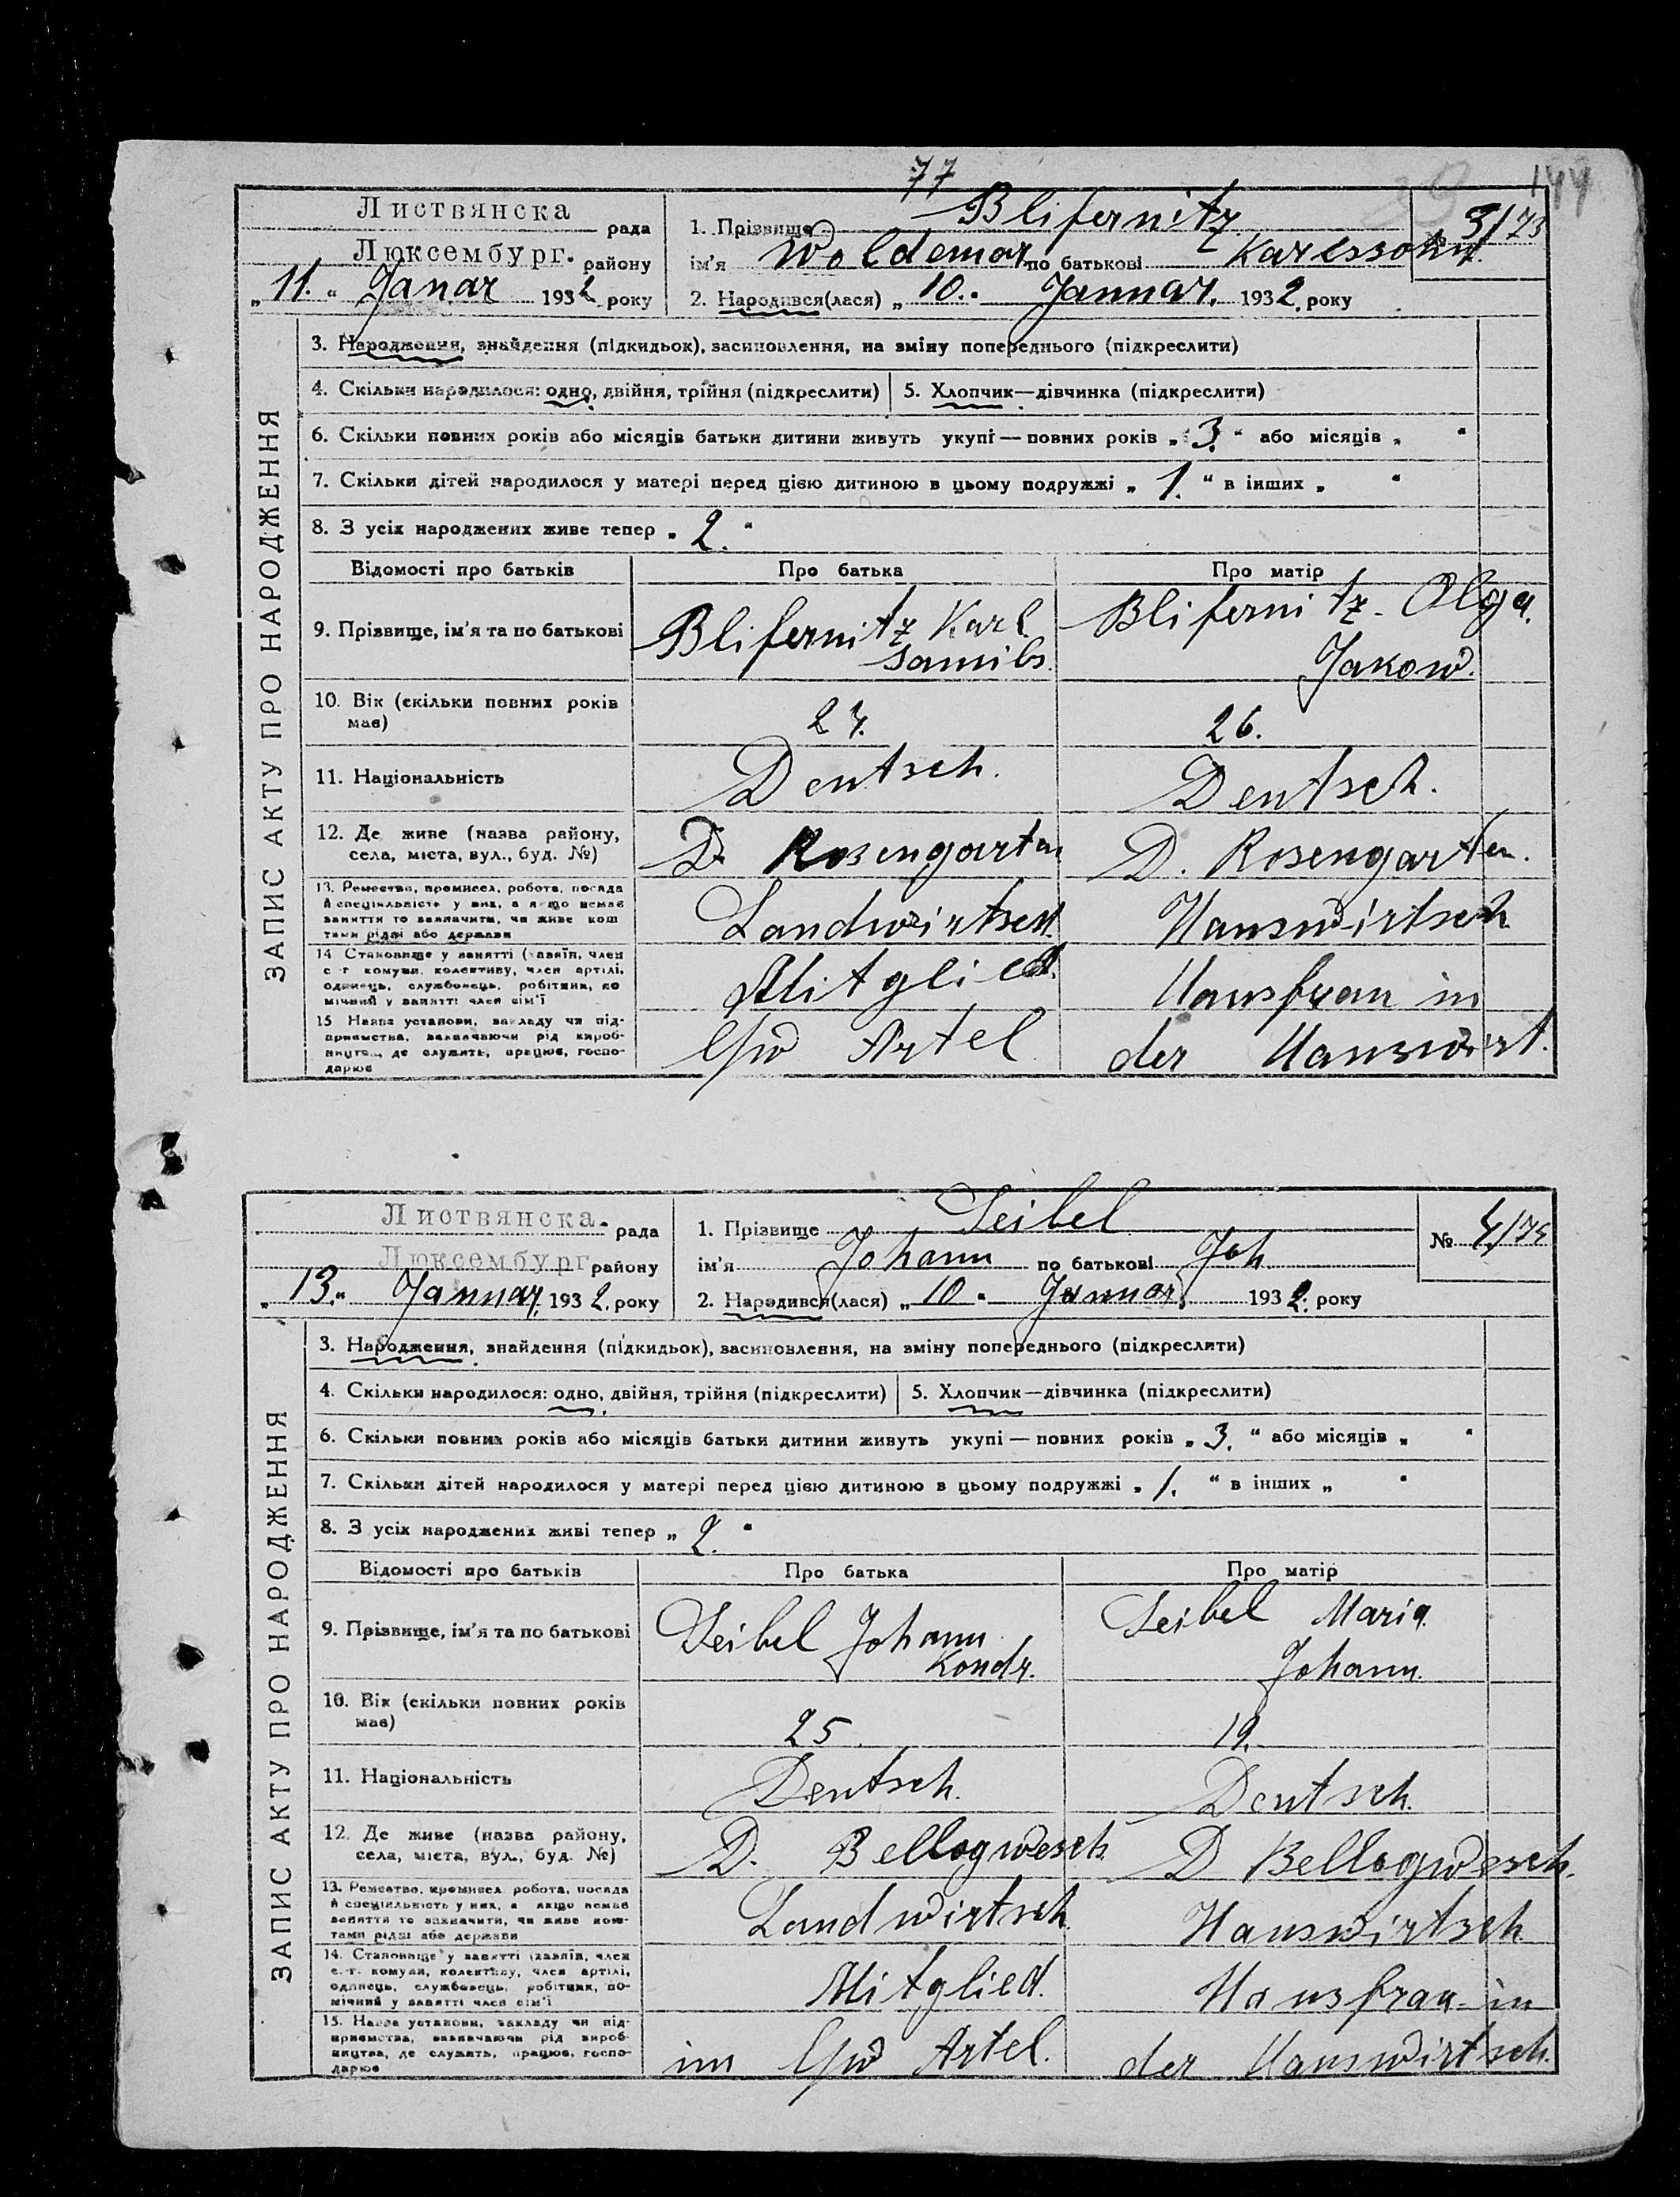 77
144
Листвянска рада
Люксембург. району
„11.“ Janar 1932 року
1. Прізвище Blifernitz
3/73
ім'я Woldemar по батькові Karlssohn
2. Народився(лася) „10.“ Januar. 1932. року
ЗАПИС АКТУ ПРО НАРОДЖЕННЯ
3. Народження, знайдення (підкидьок), засиновлення, на зміну попереднього (підкреслити)
4. Скільки народилося: одно, двійня, трійня (підкреслити) 5. Хлопчик—дівчинка (підкреслити)
6. Скільки повних років або місяців батьки дитини живуть укупі — повних років „3.“ або місяців „ “
7. Скільки дітей народилося у матері перед цією дитиною в цьому подружжі „1.“ в інших „ “
8. З усіх народжених живе тепер „2.“
Відомості про батьків Про батька Про матір
9. Прізвище, ім'я та по батькові Blifernitz Karl Blifernitz Olga.
Jakow.
10. Вік (скільки повних років має) 27. 26.
11. Національність Deutsch. Deutsch.
12. Де живе (назва району, D. Rosengarten D. Rosengarten.
села, міста, вул., буд. №)
13. Ремество, промисел, робота, посада Landwirtsch. Hauswirtsch
й спеціяльність у них, а якщо немає
заняття то зазначити, чи живе кош
тами рідні або держави
14 Становище у занятті (хазяїн, член Mitglied. Hausfrau in
с.-г. комуни, колективу, член артілі,
одинець, службовець, робітник, по
мічний у занятті член сім'ї
15 Назва установи, закладу чи під- Artel der Hauswirt.
приємства, зазначаючи рід вироб-
ництва, де служить, працює, госпо-
дарює
Листвянска. рада
Люксембург району
„13.“ Januar. 1932. року
1. Прізвище Seibel
№ 4/74
ім'я Johann по батькові Joh
2. Народився(лася) „10.“ Januar. 1932. року
ЗАПИС АКТУ ПРО НАРОДЖЕННЯ
3. Народження, знайдення (підкидьок), засиновлення, на зміну попереднього (підкреслити)
4. Скільки народилося: одно, двійня, трійня (підкреслити) 5. Хлопчик—дівчинка (підкреслити)
6. Скільки повних років або місяців батьки дитини живуть укупі — повних років „3.“ або місяців „ “
7. Скільки дітей народилося у матері перед цією дитиною в цьому подружжі „1.“ в інших „ “
8. З усіх народжених живі тепер „2.“
Відомості про батьків Про батька Про матір
9. Прізвище, ім'я та по батькові Seibel Johann Seibel Maria.
Kondr. Johann.
10. Вік (скільки повних років має) 25. 19.
11. Національність Deutsch. Deutsch.
12. Де живе (назва району, D. Bellogwesch. D Bellogwesch.
села, міста, вул., буд. №)
13. Ремество, промисел, робота, посада Landwirtsch. Hauswirtsch
й спеціяльність у них, а якщо немає
заняття то зазначити, чи живе кош-
тами рідні або держави
14. Становище у занятті (хазяїн, член Mitglied. Hausfrau in
с.-г. комуни, колективу, член артілі,
одинець, службовець, робітник, по-
мічний у занятті член сім'ї
15. Назва установи, закладу чи під- im Artel. der Hauswirtsch.
приємства, зазначаючи рід вироб-
ництва, де служить, працює, госпо-
дарює